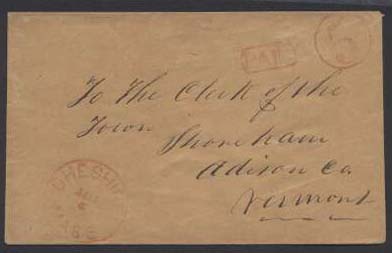 PAID
To The Clerk of the
Town Shoreham
Adison Co.
Vermont
CHESHI
6